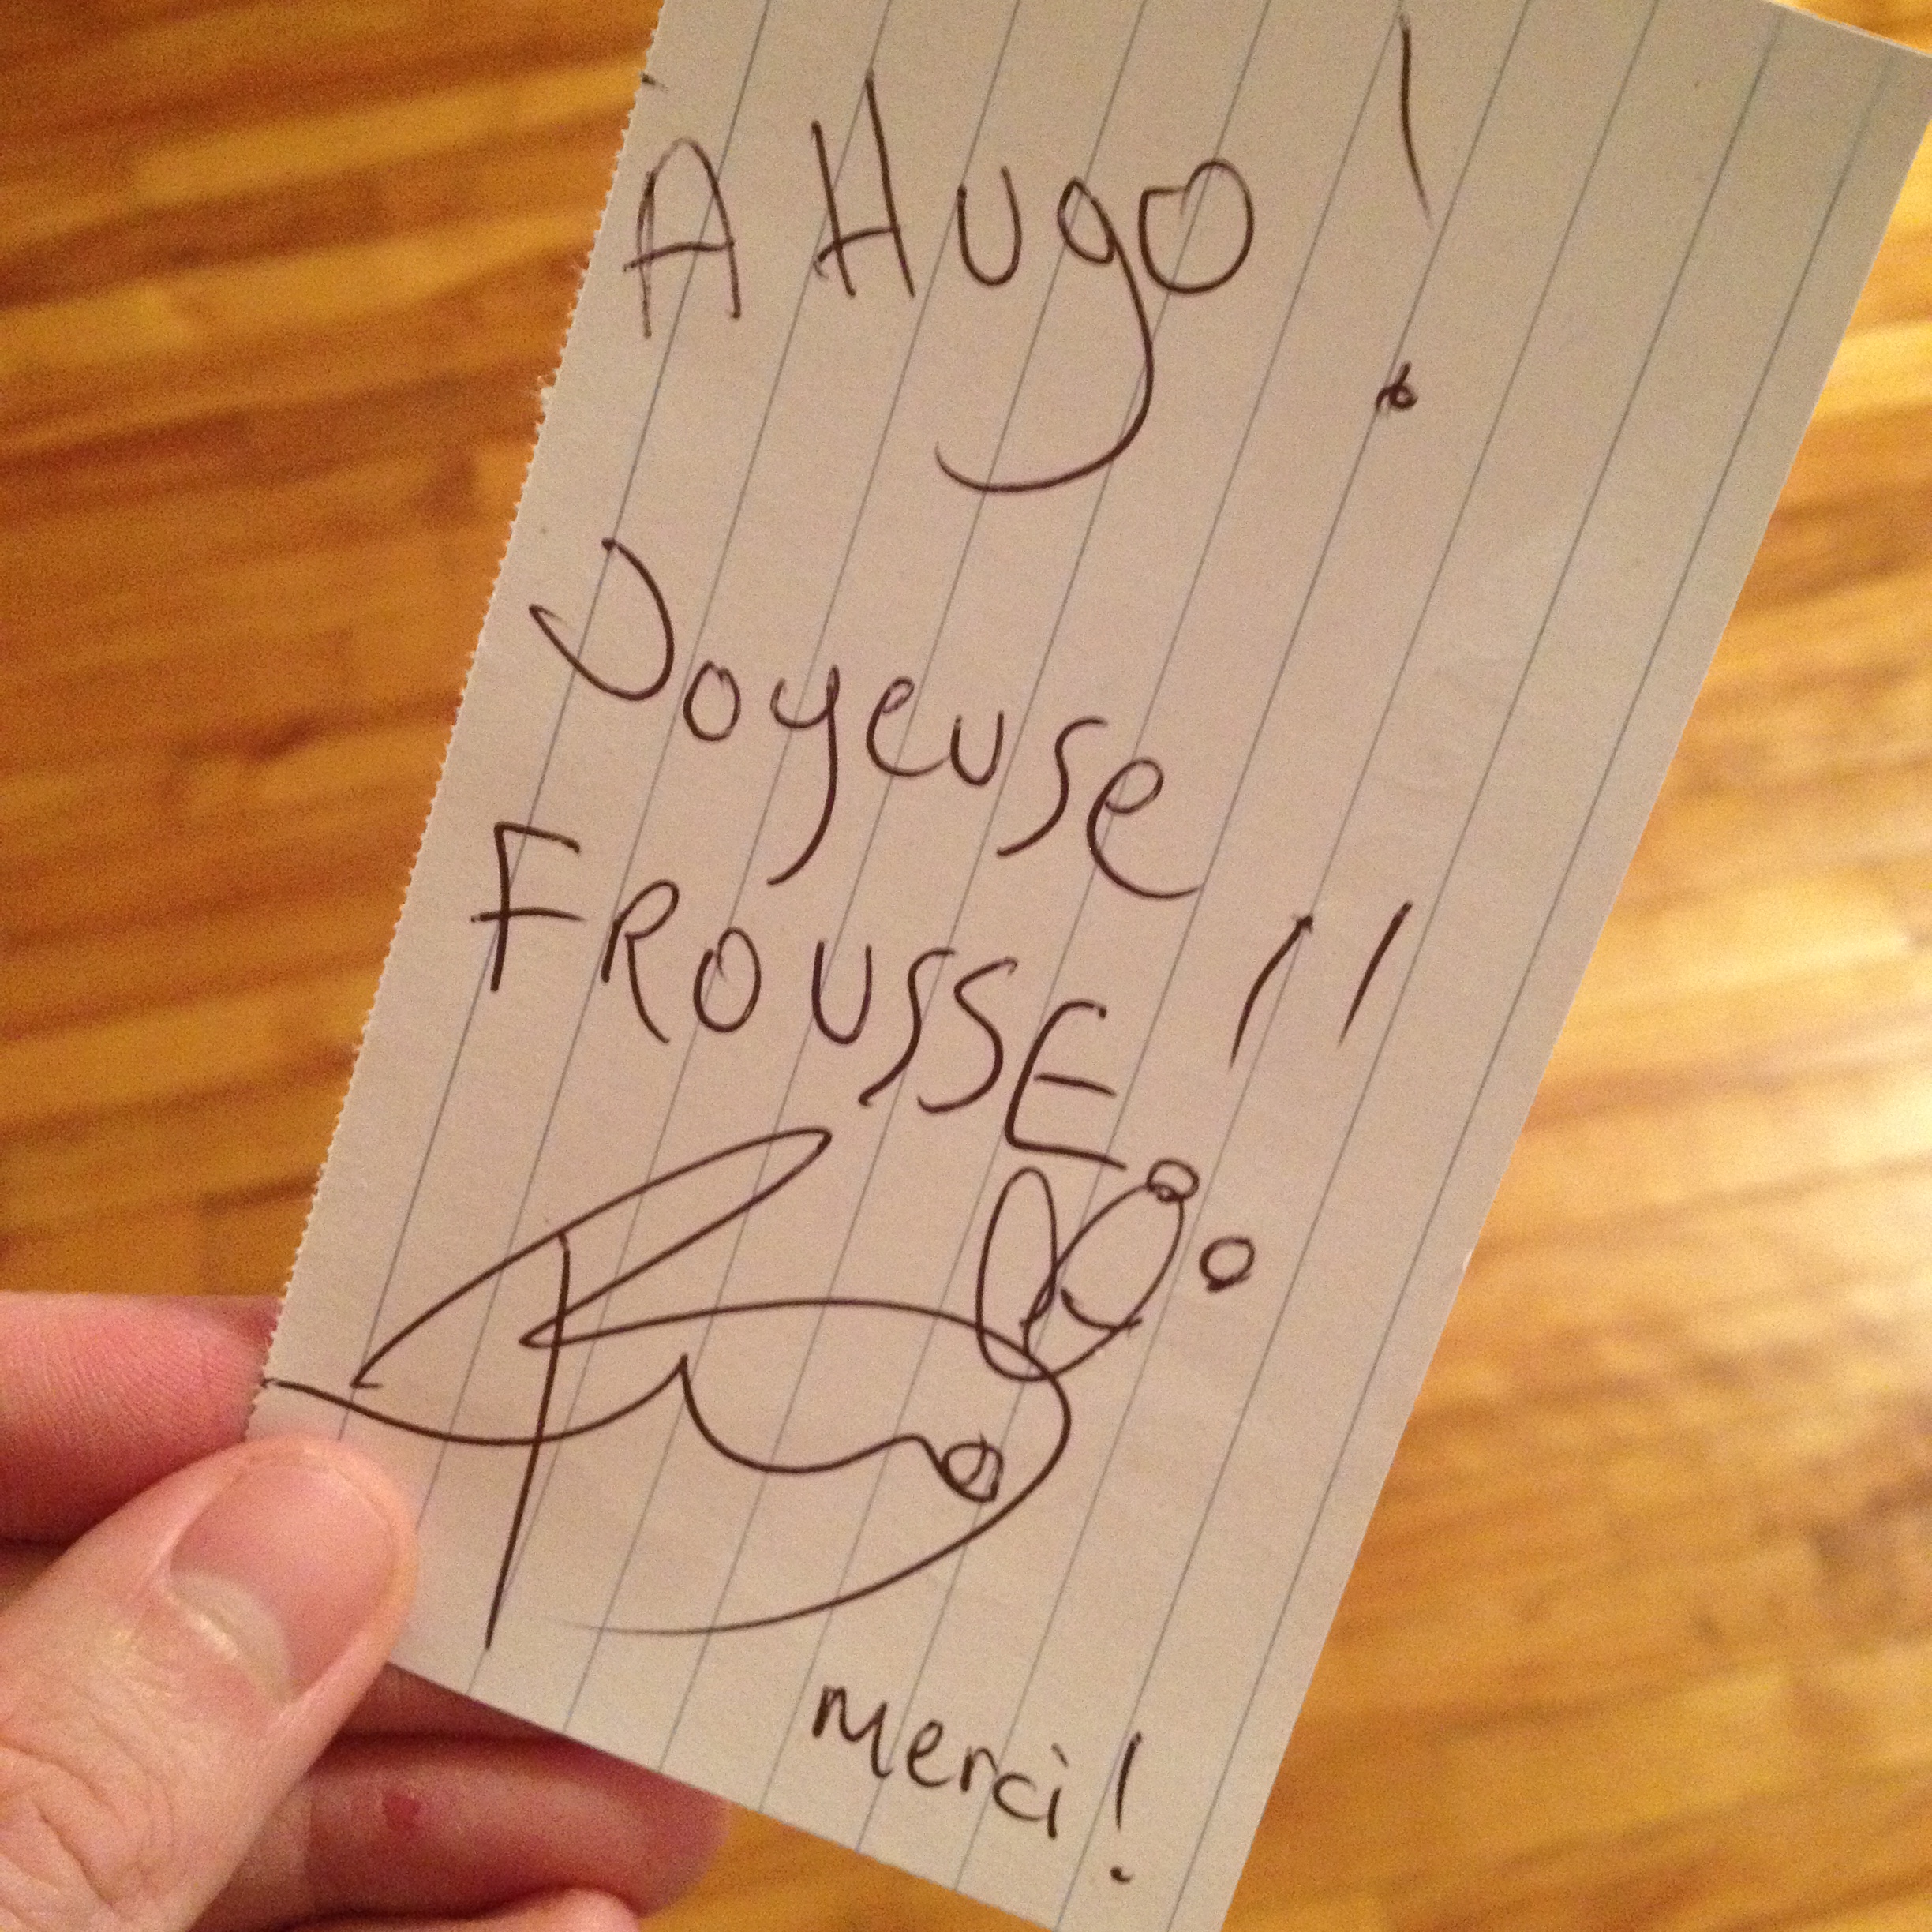 A Hugo !
Joyeuse
FROUSSE !!
Merci !